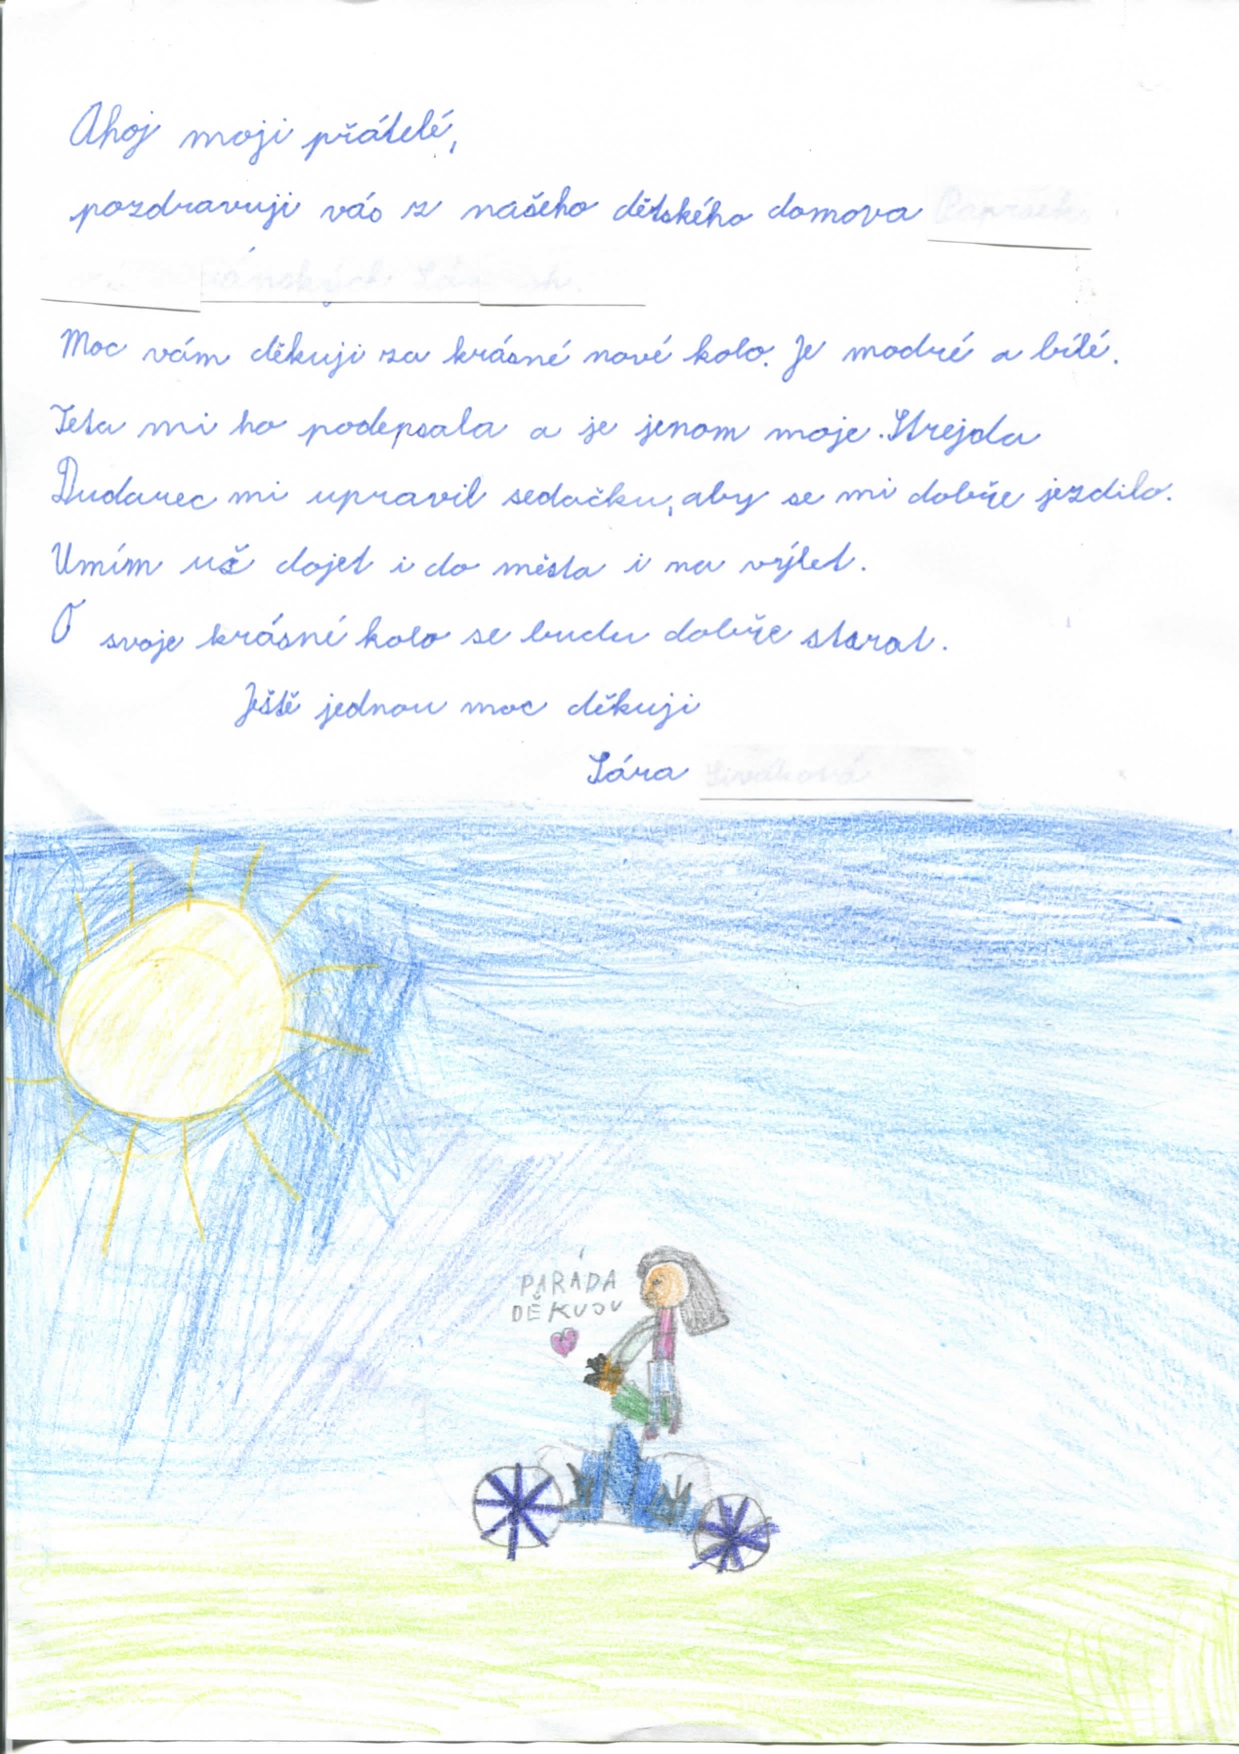 Ahoj moji přátelé,
pozdravuji vás z našeho dětského domova
Moc vám děkuji za krásné nové kolo. Je modré a bílé.
Teta mi ho podepsala a je jenom moje. Strejda
Dudavec mi upravil sedačku, aby se mi dobře jezdilo.
Umím už dojet i do města i na výlet.
O svoje krásné kolo se budu dobře starat.
Ještě jednou moc děkuji
Sára
PARÁDA
DĚKUJU